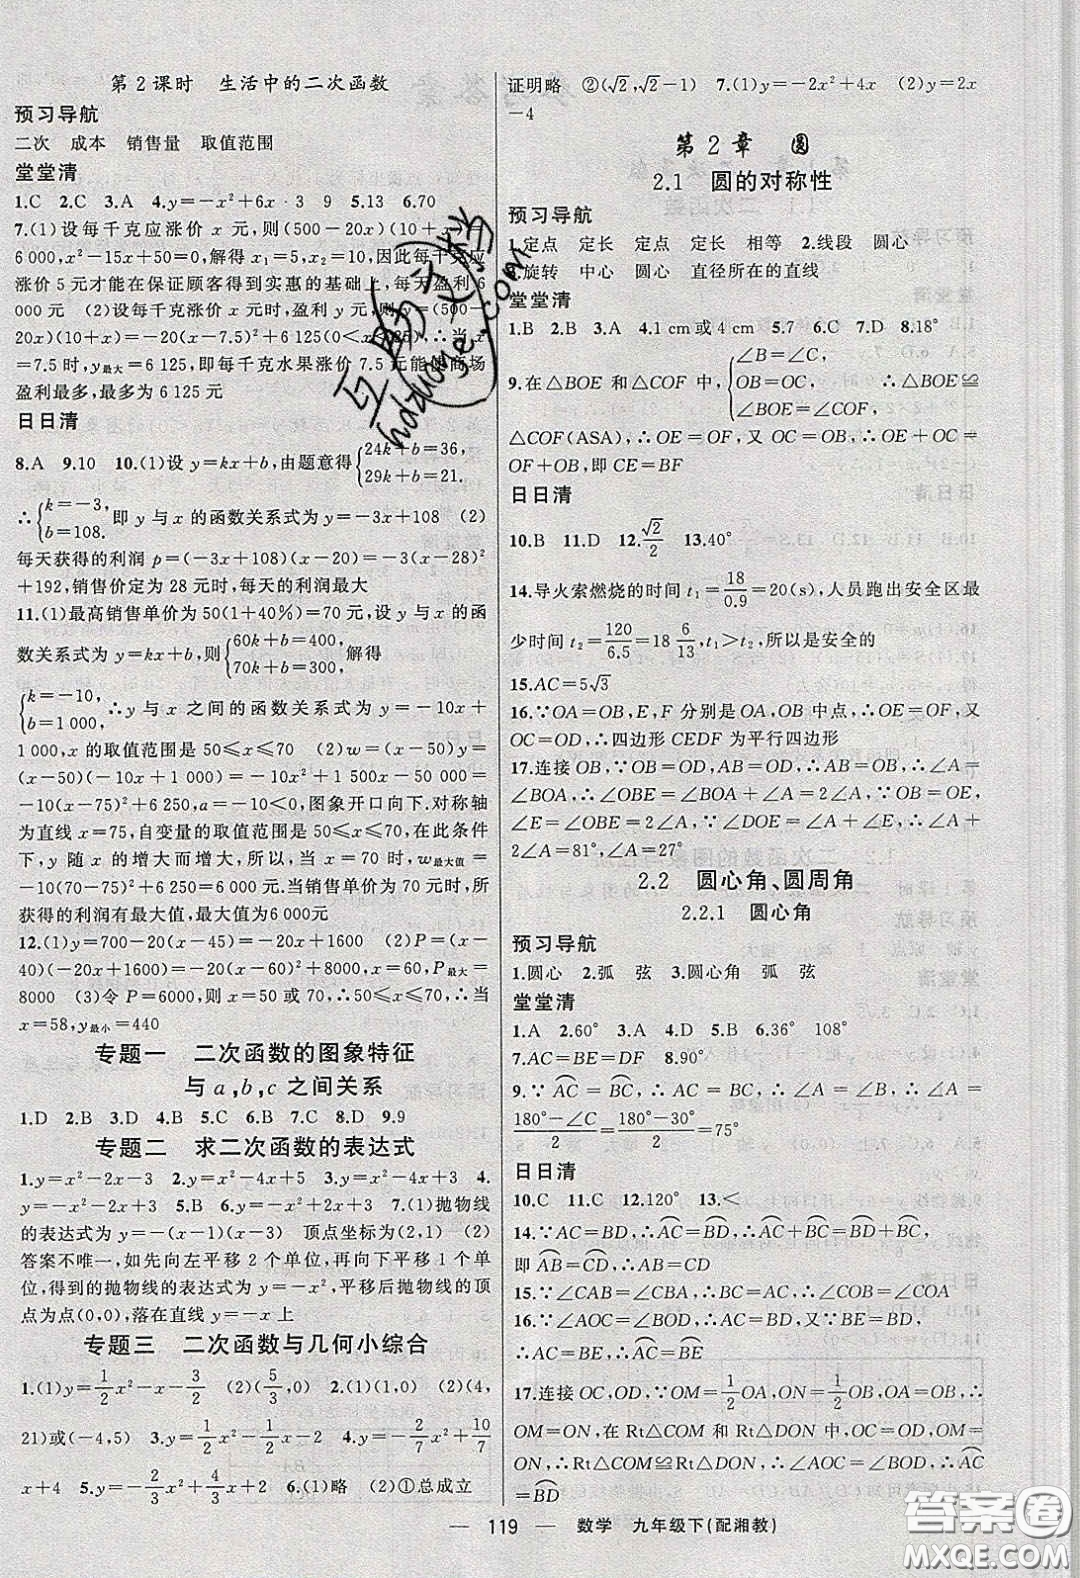 第2课时　生活中的二次函数
预习导航
二次　成本　销售量　取值范围
堂堂清
1.C　2.C　3.A　4.y=-x²+6x·3　9　5.13　6.70
7.(1)设每千克应涨价 x 元,则(500-20x)(10+x)=
6 000,x²-15x+50=0,解得 x₁=5,x₂=10,因此每千克应
涨价 5 元才能在保证顾客得到实惠的基础上,每天盈利 6
000元　(2)设每千克涨价 x 元时,盈利 y 元,则 y=(500-
20x)(10+x)=-20(x-7.5)²+6 125(0<x<25),∴当 x
=7.5 时,y最大=6 125,即每千克水果涨价 7.5 元能使商场
盈利最多,最多为 6 125元
日日清
8.A　9.10　10.(1)设 y=kx+b,由题意得{24k+b=36, 29k+b=21.
∴{k=-3, b=108. 即 y 与 x 的函数关系式为 y=-3x+108　(2)
每天获得的利润 p=(-3x+108)(x-20)=-3(x-28)²
+192,销售价定为 28 元时,每天的利润最大
11.(1)最高销售单价为 50(1+40%)=70 元,设 y 与 x 的函
数关系式为 y=kx+b,则{60k+b=400, 70k+b=300, 解得
{k=-10, b=1 000, ∴y 与 x 之间的函数关系式为 y=-10x+
1 000,x 的取值范围是 50≤x≤70　(2)w=(x-50)y=
(x-50)(-10x+1 000)=-10x²+1 500x-50 000=
-10(x-75)²+6 250,a=-10<0,图象开口向下.对称轴
为直线 x=75,自变量的取值范围是 50≤x≤70,在此条件
下,y 随 x 的增大而增大,所以,当 x=70 时,w最大值=
-10(70-75)²+6 250=6 000.当销售单价为70元时,所
获得的利润有最大值,最大值为6 000元
12.(1)y=700-20(x-45)=-20x+1600　(2)P=(x-
40)(-20x+1600)=-20(x-60)²+8000,x=60,P最大=
8000　(3)令 P=6000,则 x=50 或 70,∴50≤x≤58,∴当
x=58,y最小=440
专题一　二次函数的图象特征
与 a,b,c 之间关系
1.D　2.B　3.D　4.B　5.C　6.B　7.C　8.D　9.9
专题二　求二次函数的表达式
1.y=x²-2x-3　2.y=x²-4x+5　3.y=x²-4x+3　4.
y=-x²-2x+3　5.y=x²+2x　6.y=-x²+2x+3　7.(1)抛物线
的表达式为 y=-(x-1)(x-3)　顶点坐标为(2,1)　(2)
答案不唯一,如先向左平移 2 个单位,再向下平移 1 个单
位,得到的抛物线的表达式为 y=-x²,平移后抛物线的顶
点为(0,0),落在直线 y=-x 上
专题三　二次函数与几何小综合
1.(1)y=1/2x²-x-3/2　(2)(5/3,0)　2.(1)(1,0)　(2)(4,
21)或(-4,5)　3.y=1/2x²-3/2x-2　4.y=-2/7x²+10/7
x+4　5.y=-2/3x²+4/3x+2　6.(1)略　(2)①总成立
证明略　②(√2,√2-1)　7.(1)y=-2x²+4x　(2)y=2x
-4
第2章　圆
2.1　圆的对称性
预习导航
1.定点　定长　定点　定长　相等　2.线段　圆心
3.旋转　中心　圆心　直径所在的直线
堂堂清
1.B　2.B　3.A　4.1 cm或4 cm　5.7　6.C　7.D　8.18°
9.在△BOE 和△COF 中,{∠B=∠C, OB=OC, ∠BOE=∠COF, ∴△BOE≌
△COF(ASA),∴OE=OF,又 OC=OB,∴OE+OC=
OF+OB,即 CE=BF
日日清
10.B　11.D　12.√2/2　13.40°
14.导火索燃烧的时间 t₁=18/0.9=20(s),人员跑出安全区最
少时间 t₂=120/6.5=18 6/13,t₁>t₂,所以是安全的
15.AC=5√3
16.∵OA=OB,E,F 分别是 OA,OB 中点,∴OE=OF,又
OC=OD,∴四边形 CEDF 为平行四边形
17.连接 OB,∵OB=OD,AB=OD,∴AB=OB,∴∠A=
∠BOA,∴∠OBE=∠BOA+∠A=2∠A,∵OB=OE,
∠E=∠OBE=2∠A,∵∠DOE=∠A+∠E,∴∠A+
2∠A=81°,∠A=27°
2.2　圆心角、圆周角
2.2.1　圆心角
预习导航
1.圆心　2.弧　弦　3.圆心角　弧　弦
堂堂清
1.A　2.60°　3.A　4.D　5.B　6.36°　108°
7.AC=BE=DF　8.90°
9.∵AC=BC,∴AC=BC,∴∠A=∠B,∴∠A=
180°-∠C/2=180°-30°/2=75°
日日清
10.C　11.C　12.120°　13.<
14.∵AC=BD,∴AC=BD,∴AC+BC=BD+BC,
即 AB=CD,∴AB=CD
15.∵∠CAB=∠CBA,∴BC=AC,∴∠COB=∠COA
16.∵∠AOC=∠BOE,∴AC=BE,又AE=AC,∴
AE=BE
17.连接 OC,OD,∵OM=1/2OA,ON=1/2OB,OA=OB,∴
OM=ON,在 Rt△COM 和Rt△DON 中,OC=OD,
OM=ON,∴Rt△COM≌Rt△DON,∴∠AOC=∠BOD,∴AC
=BD
— 119 —　数学　九年级下(配湘教)
互助文档
hdzuoye.com
答案圈
MXQE.COM